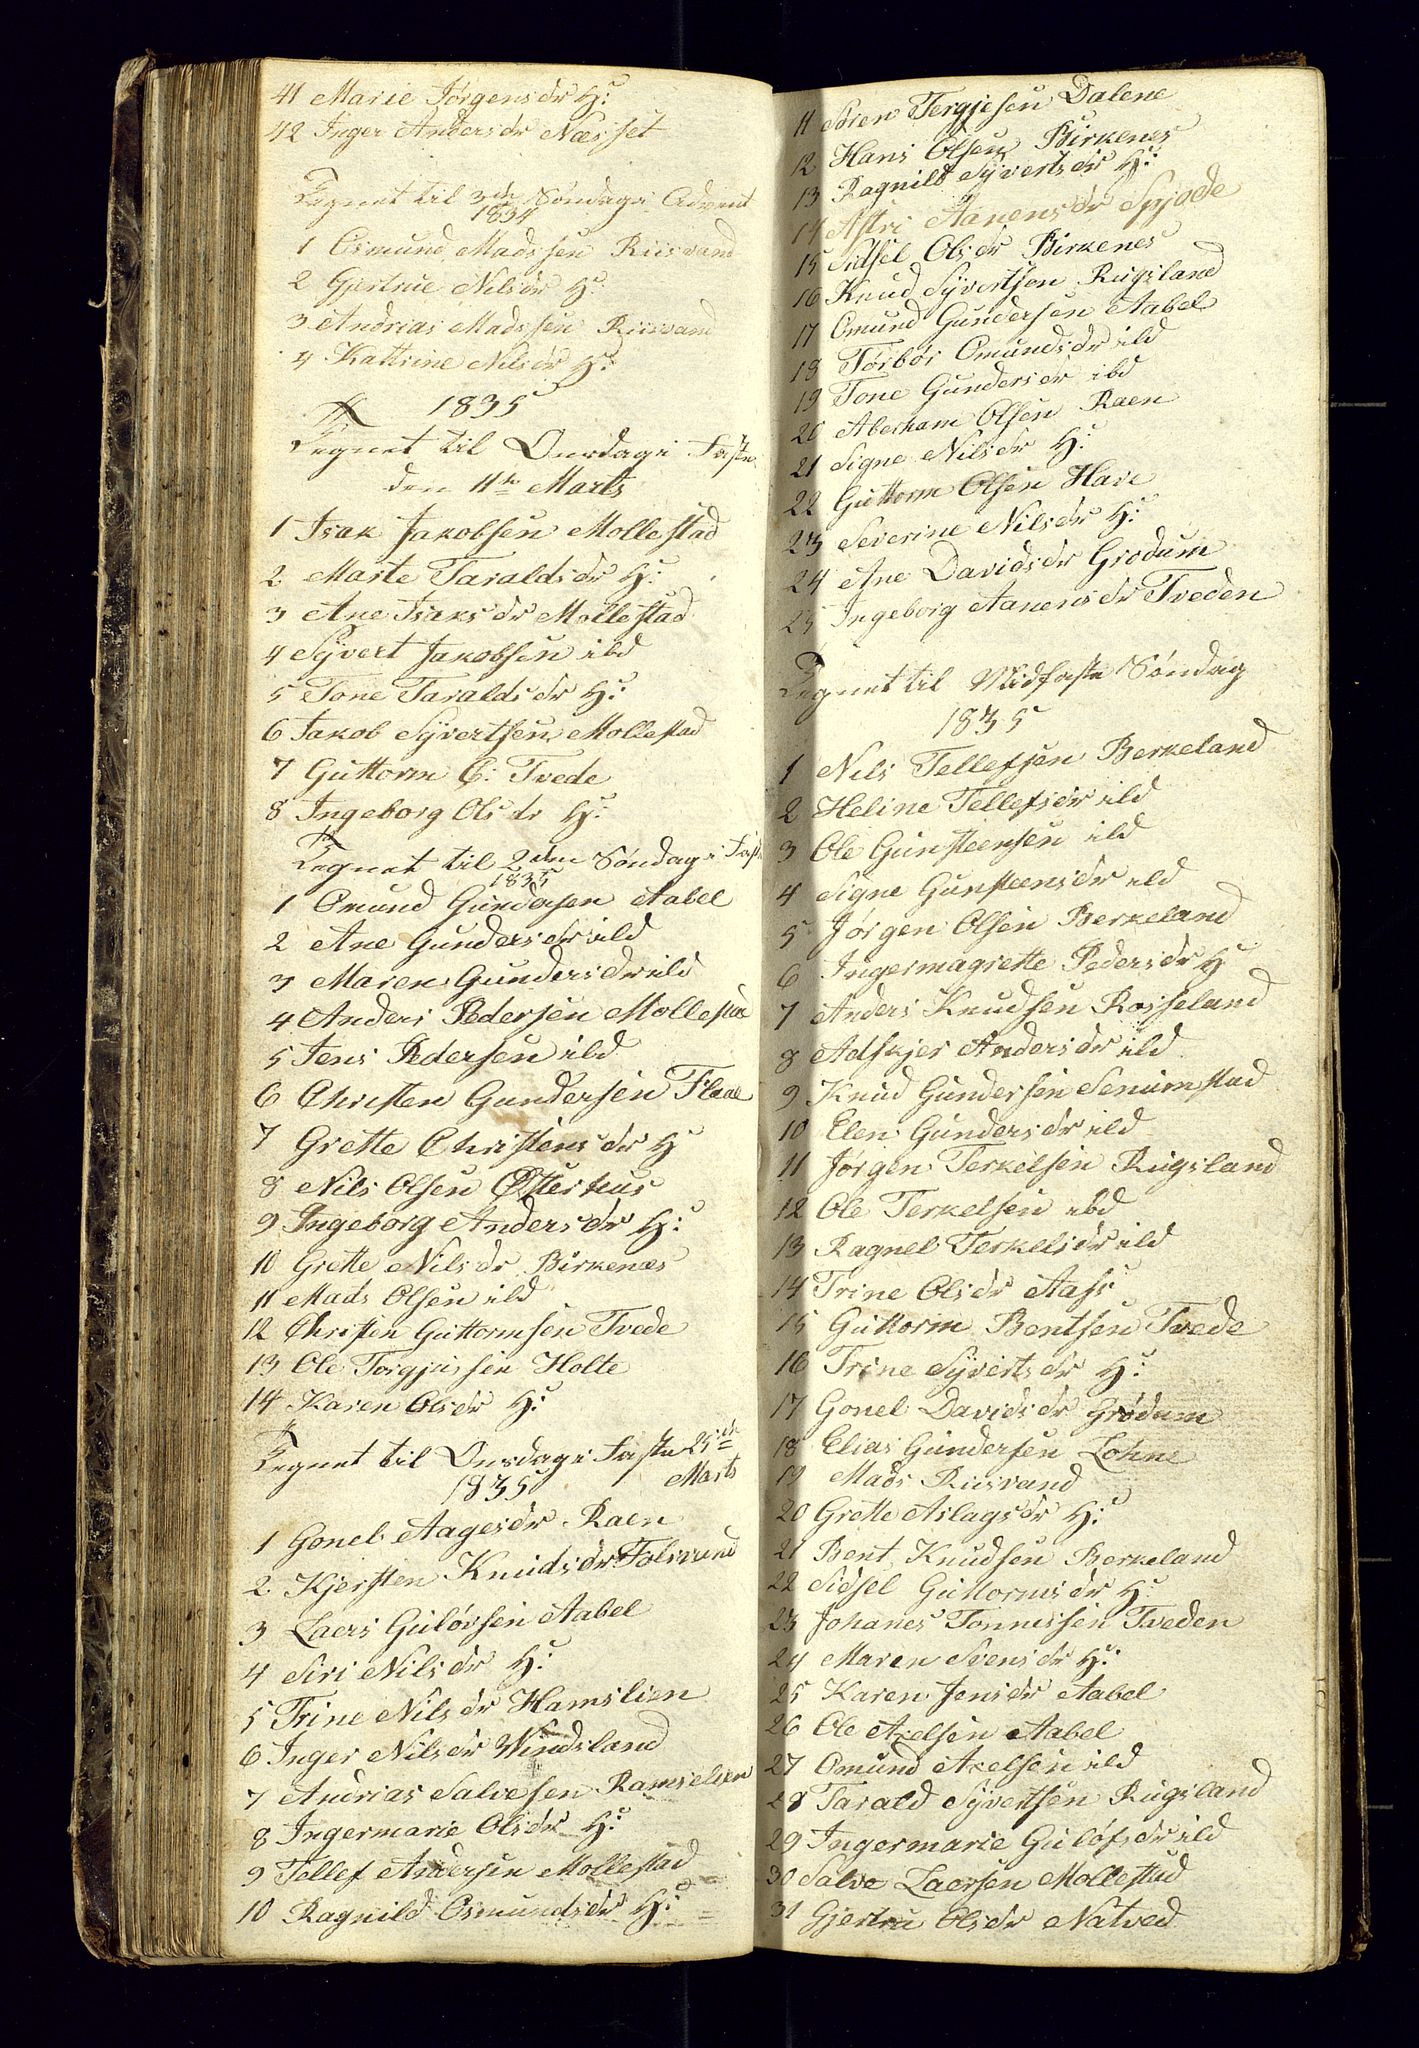 41 Marie Jørgensdr H:
42 Inger Andersdr Næsset
Tegnet til 3de Søndag i Advent
1834
1 Osmund Madssen Riisvand
2 Gjertrue Nilsdr H:
3 Andrias Madssen Riisvand
4 Kathrine Nilsdr H:
1835
Tegnet til Onsdag i Faste
den 11te Marts
1 Isak Jakobsen Mollestad
2 Marte Taraldsdr H:
3 Ane Isaksdr Mollestad
4 Syvert Jakobsen ibd
5 Tone Taraldsdr H:
6 Jakob Syvertsen Mollestad
7 Guttorm C: Tvede
8 Ingeborg Olsdr H:
Tegnet til 2den Søndag i Faste
1835
1 Omund Gundersen Aabel
2 Ane Gundersdr ibd
3 Maren Gundersdr ibd
4 Anders Pedersen Mollestad
5 Jens Pedersen ibd
6 Christen Gundersen Flaae
7 Grette Christensdr H
8 Nils Olsen Østerhus
9 Ingeborg Andersdr H:
10 Grette Nilsdr Birkenes
11 Mads Olsen ibd
12 Christen Guttormsen Tvede
13 Ole Torgjussen Holte
14 Karen Olsdr H:
Tegnet til Onsdag i Faste 25de
1835 Marts
1 Gonel Aagesdr Raen
2 Kjersten Knudsdr
3 Laers Guløvsen Aabel
4 Siri Nilsdr H:
5 Trine Nilsdr Hamslien
6 Inger Nilsdr Windsland
7 Andrias Salvesen Ramselien
8 Ingermarie Olsdr H:
9 Tellef Andersen Mollestad
10 Ragnild Osmundsdr H:
11 Sören Tergjesen Dalene
12 Hans Olsen Birkenes
13 Ragnild Syvertsdr H:
14 Astri Aanensdr
15 Sidsel Olsdr Birkenes
16 Knud Syvertsen Rugsland
17 Omund Gundersen Aabel
18 Torbor Omundsdr ibd
19 Tone Gundersdr ibd
20 Abraham Olsen Raen
21 Signe Nilsdr H:
22 Guttorm Olsen Have
23 Severine Nilsdr H:
24 Ane Davidsdr Grødum
25 Ingeborg Aanensdr Tveden
Tegnet til Midfaste Søndag
1835
1 Nils Tellefsen Berkeland
2 Heline Tellefsdr ibd
3 Ole Gunsteensen ibd
4 Signe Gunsteensdr ibd
5 Jørgen Olsen Berkeland
6 Ingermagrette Pedersdr H
7 Anders Knudsen Rosseland
8 Adskjer Andersdr ibd
9 Knud Gundersen Senumstad
10 Elen Gundersdr ibd
11 Jørgen Terkelsen Rugsland
12 Ole Terkelsen ibd
13 Ragnel Terkelsdr ibd
14 Trine Olsdr Aass
15 Guttorm Bentsen Tvede
16 Trine Syvertsdr H:
17 Gonel Davidsdr Grødum
18 Elias Gundersen Lohne
19 Mads Riisvand
20 Grette Aslagsdr H:
21 Bent Knudsen Berkeland
22 Sidsel Guttormsdr H:
23 Johanes Tønnessen Tveden
24 Maren Svensdr H:
25 Karen Jensdr Aabel
26 Ole Axelsen Aabel
27 Omund Axelsen ibd
28 Tarald Syvertsen Rugsland
29 Ingermarie Guløfsdr ibd
30 Salve Laersen Mollestad
31 Gjertru Olsdr Natved